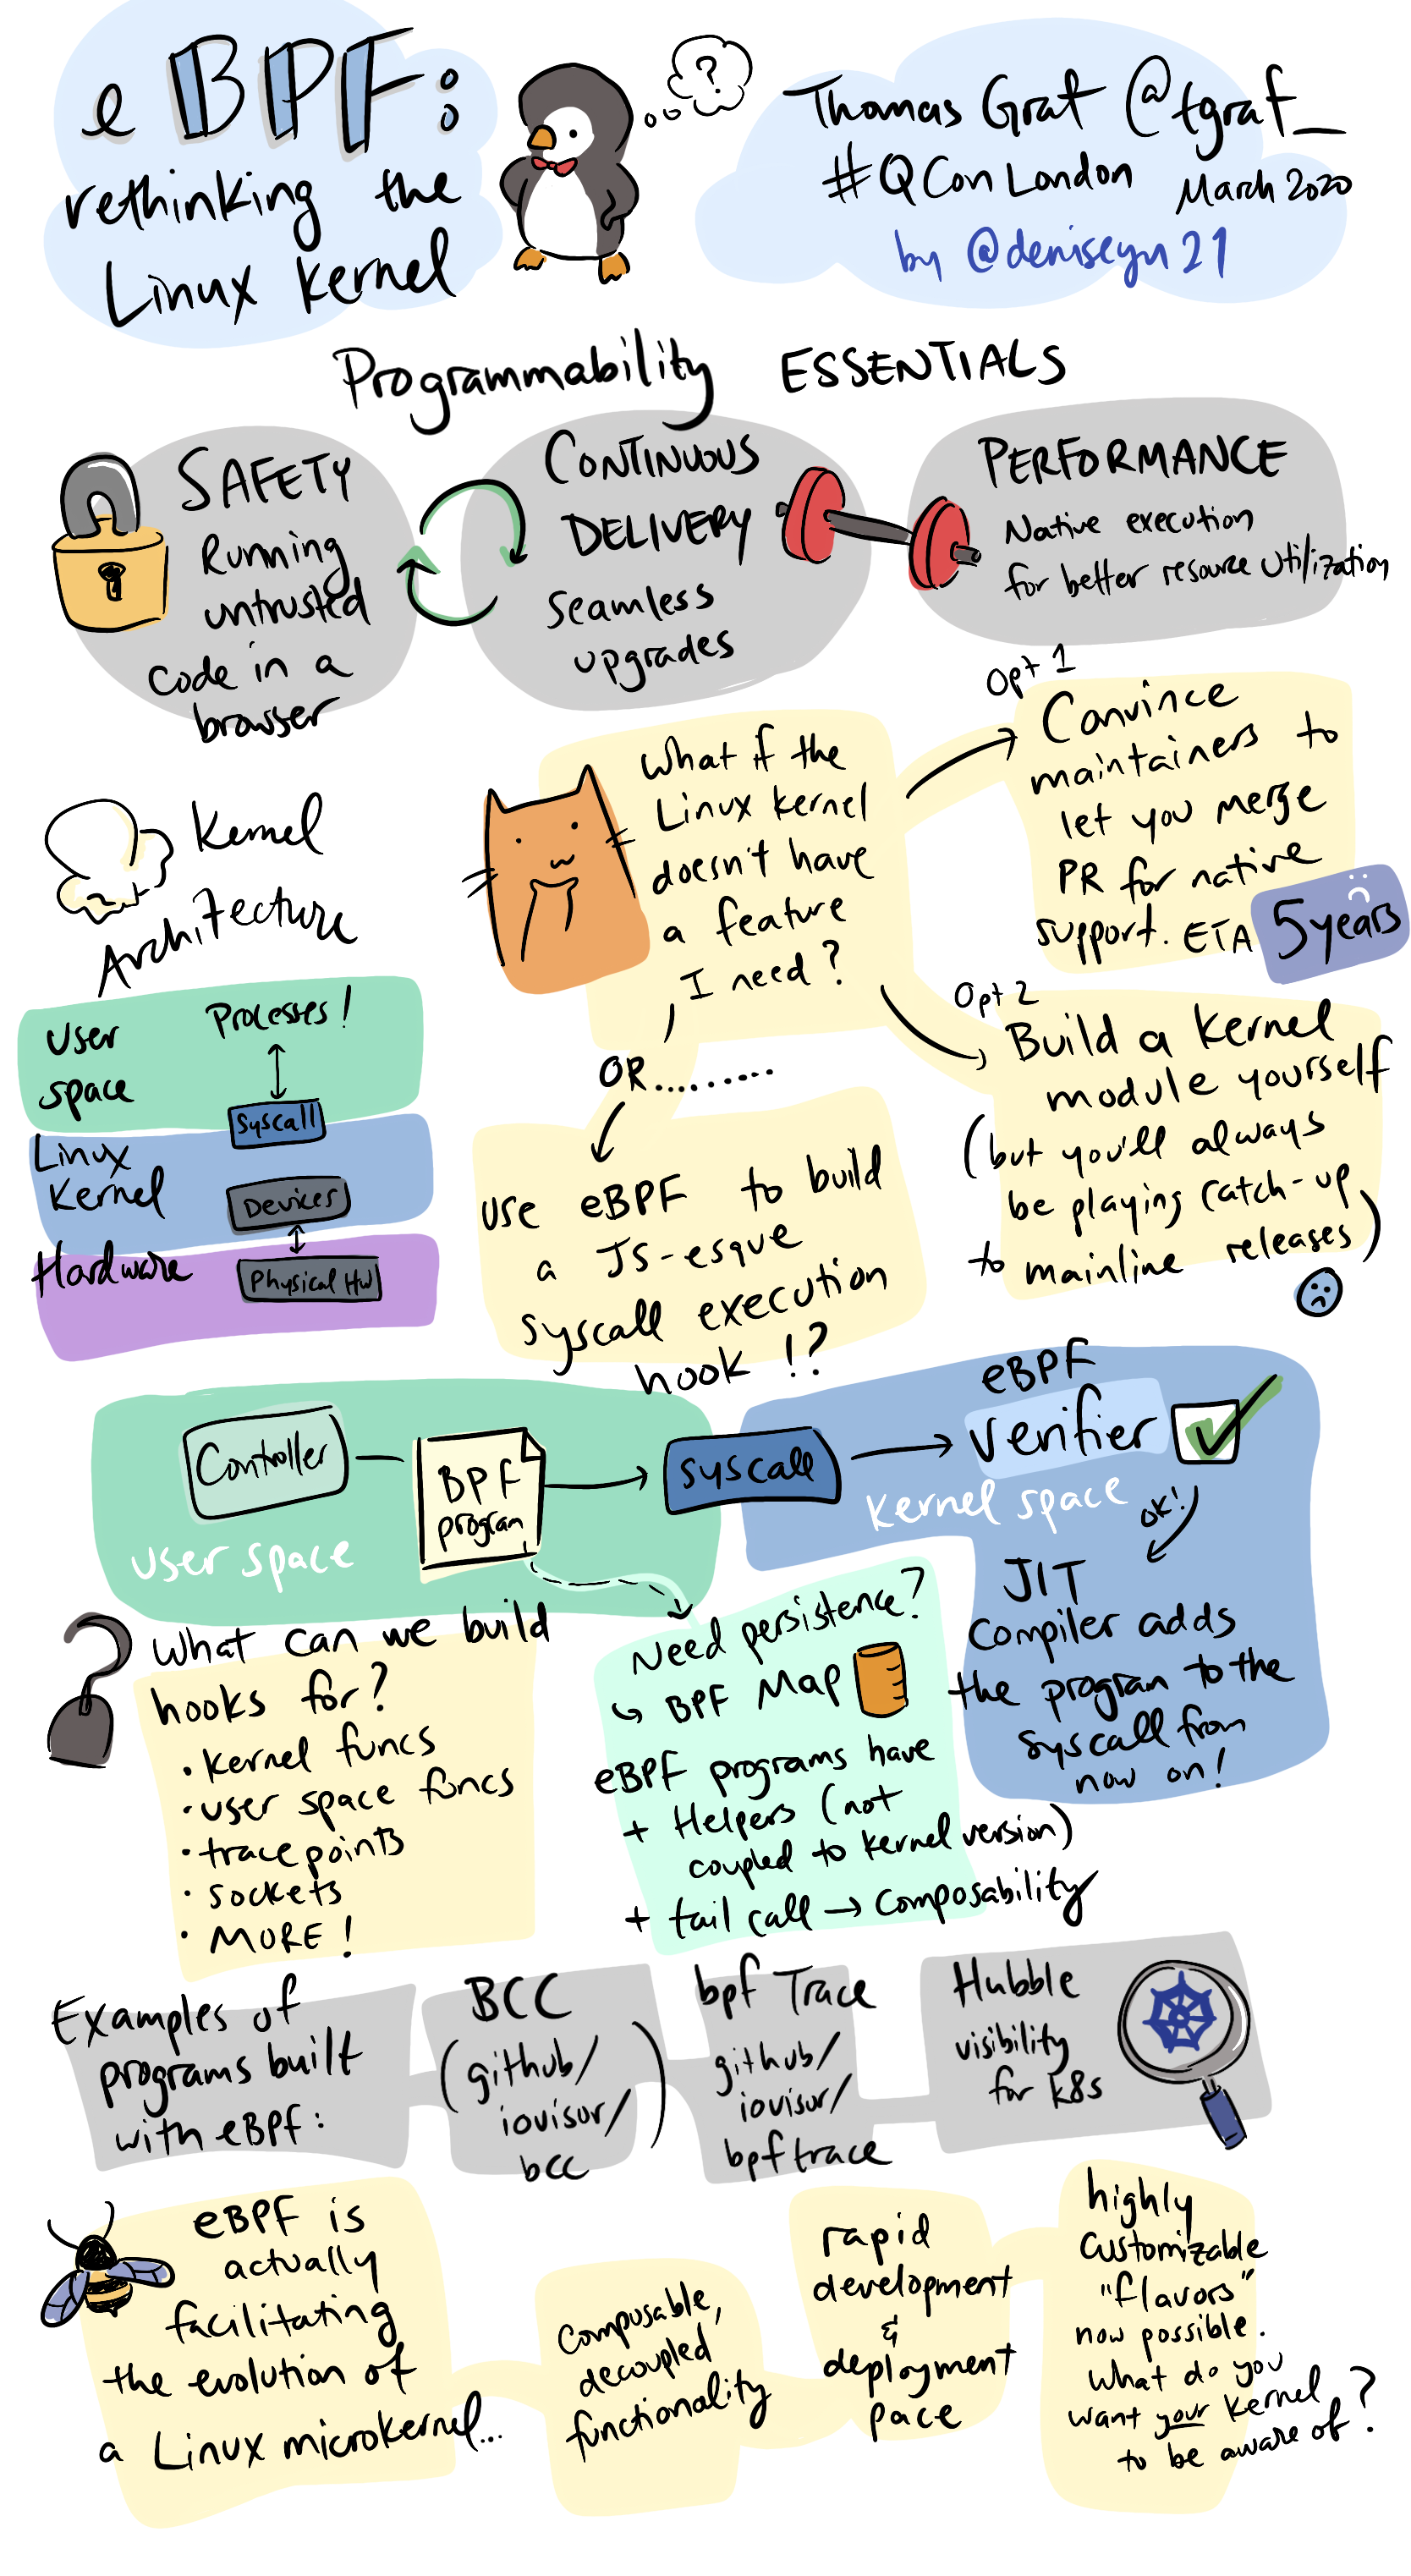 eBPF:
rethinking the
Linux kernel
?
Thomas Graf @tgraf_
#QCon London March 2020
by @deniseyu21
Programmability ESSENTIALS
SAFETY
Running
untrusted
code in a
browser
CONTINUOUS
DELIVERY
Seamless
upgrades
PERFORMANCE
Native execution
for better resource utilization
Kernel
Architecture
User
space
Processes!
Syscall
Linux
Kernel
Devices
Hardware
Physical HW
What if the
Linux kernel
doesn't have
a feature
I need?
Opt 1
Convince
maintainers to
let you merge
PR for native
support. ETA 5 years
Opt 2
Build a kernel
module yourself
(but you'll always
be playing catch-up
to mainline releases)
OR.........
use eBPF to build
a JS-esque
syscall execution
hook!?
Controller
BPF
program
user space
syscall
eBPF
verifier
kernel space
OK!
JIT
Compiler adds
the program to the
syscall from
now on!
What can we build
hooks for?
• kernel funcs
• user space funcs
• trace points
• sockets
• MORE!
Need persistence?
↳ BPF Map
eBPF programs have
+ Helpers (not
coupled to kernel version)
+ tail call → composability
Examples of
programs built
with eBPF:
BCC
(github/
iovisor/
bcc)
bpf Trace
github/
iovisor/
bpftrace
Hubble
visibility
for k8s
eBPF is
actually
facilitating
the evolution of
a Linux microkernel...
Composable,
decoupled
functionality
rapid
development
&
deployment
pace
highly
customizable
"flavors"
now possible.
What do you
want your kernel
to be aware of?